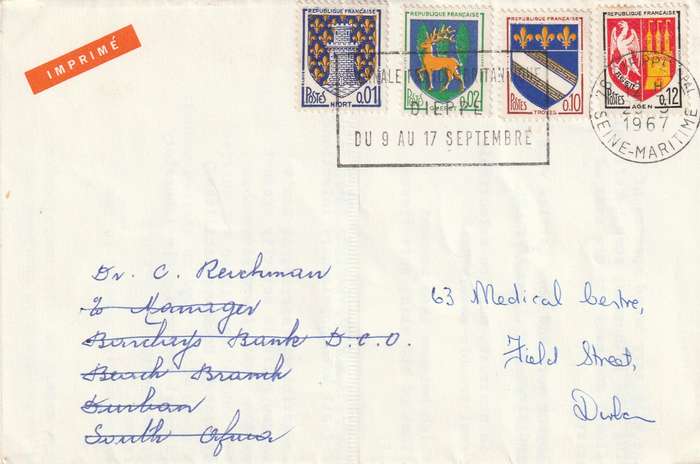 IMPRIMÉ
REPUBLIQUE FRANÇAISE
POSTES 0,01
NIORT
REPUBLIQUE FRANÇAISE
0,02
REPUBLIQUE FRANÇAISE
POSTES 0,10
TROYES
REPUBLIQUE FRANÇAISE
POSTES 0,12
AGEN
DIEPPE
DU 9 AU 17 SEPTEMBRE
1967
SEINE-MARITIME
Dr. C. Reichman
c/o Manager
Barclays Bank D.C.O.
Beach Branch
Durban
South Africa
63 Medical Centre,
Field Street,
Durban